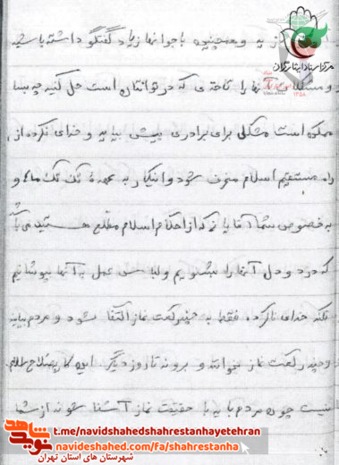 و همچنین با جوانها زیاد گفتگو داشته باشید
مرکز اسناد ایثارگران
و مسائل آنها را تا حدی که در توانتان است حل کنید چه بسا
ممکن است مشکلی برای برادری پیش بیاید و خدای نکرده از
راه مستقیم اسلام منحرف شود و اینکار به عهدۀ تک تک ما و
به خصوص شما آقایانی که از احکام اسلام مطلع هستید می باشد
که درد و دل آنها را بشنویم و لباس عمل به آنها بپوشانیم
نکند خدای نکرده فقط به چند رکعت نماز اکتفا شود و مردم بیایند
و چند رکعت نماز بخوانند و بروند تا روز دیگر این کار به صلاح اسلام
نیست چون مردم باید با حقیقت نماز آشنا شوند از شما
نوید شاهد
t.me/navidshahedshahrestanhayetehran
navideshahed.com/fa/shahrestanha
شهرستان های استان تهران